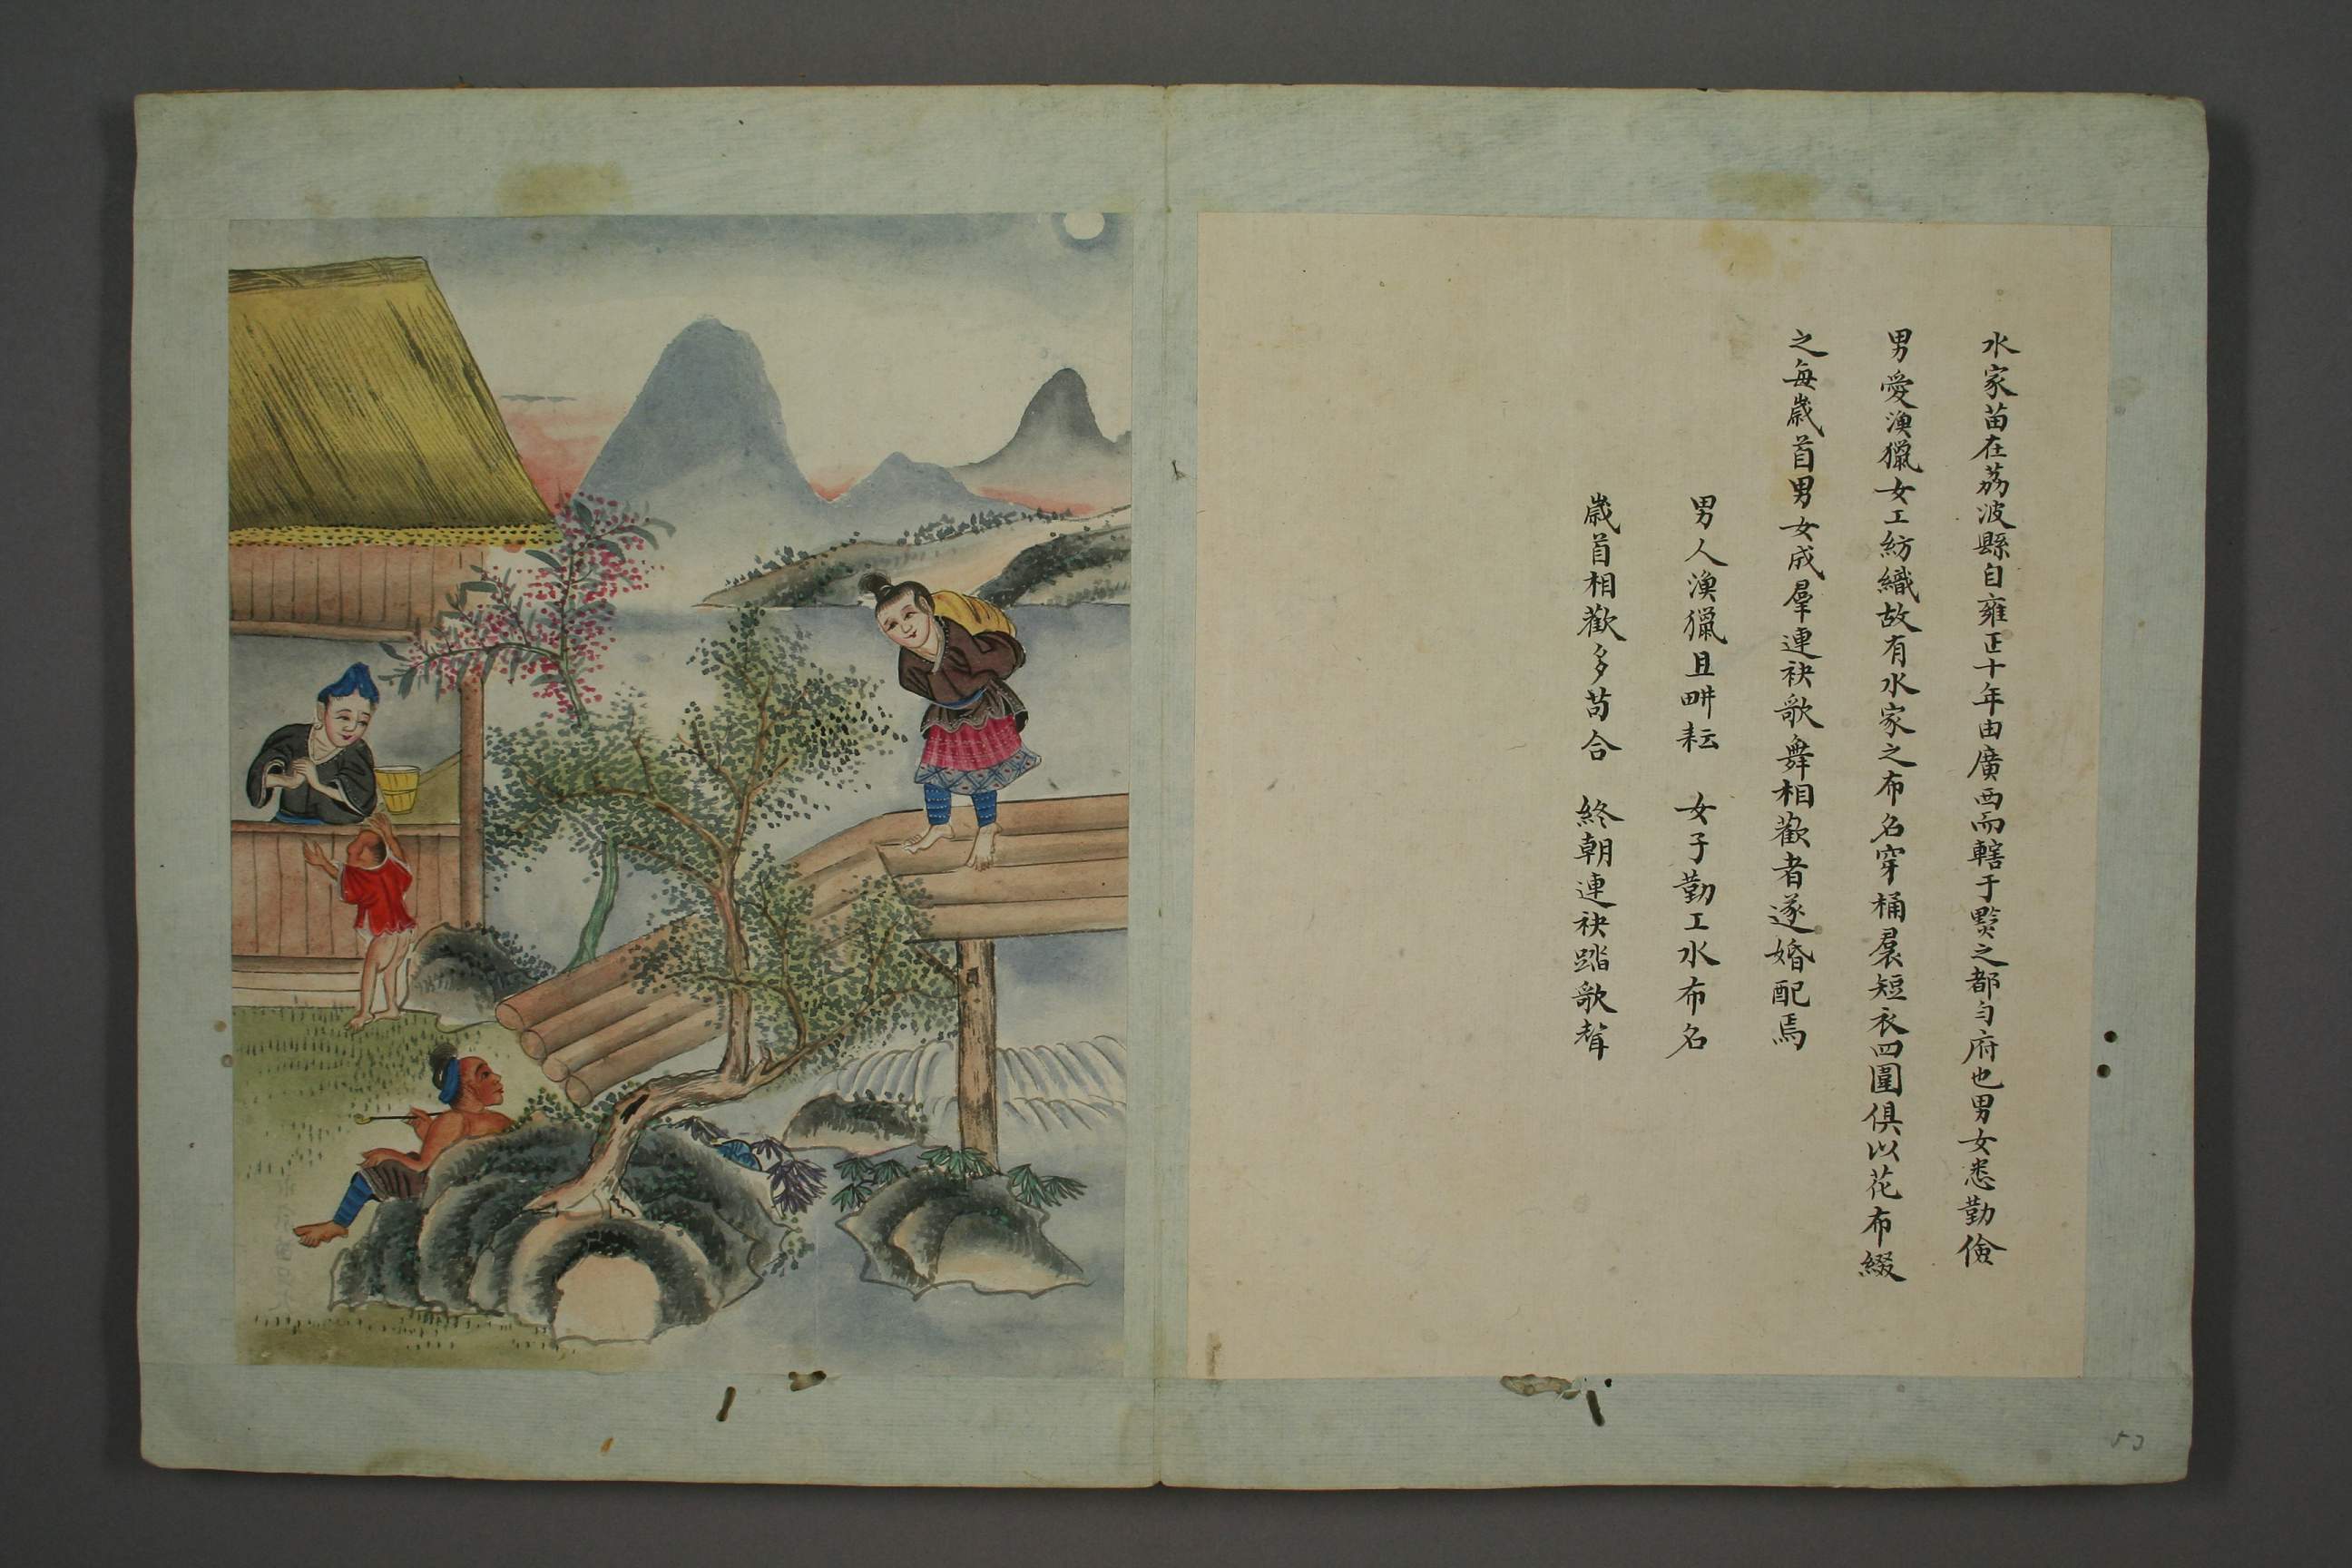 水家苗在荔波縣自雍正十年由廣西而轄于黔之都匀府也男女悉勤儉
男愛漁獵女工紡織故有水家之布名穿桶裠短衣四圍俱以花布綴
之每歲首男女成羣連袂歌舞相歡者遂婚配焉
男人漁獵且畊耘　女子勤工水布名
歲首相歡多苟合　終朝連袂踏歌聲